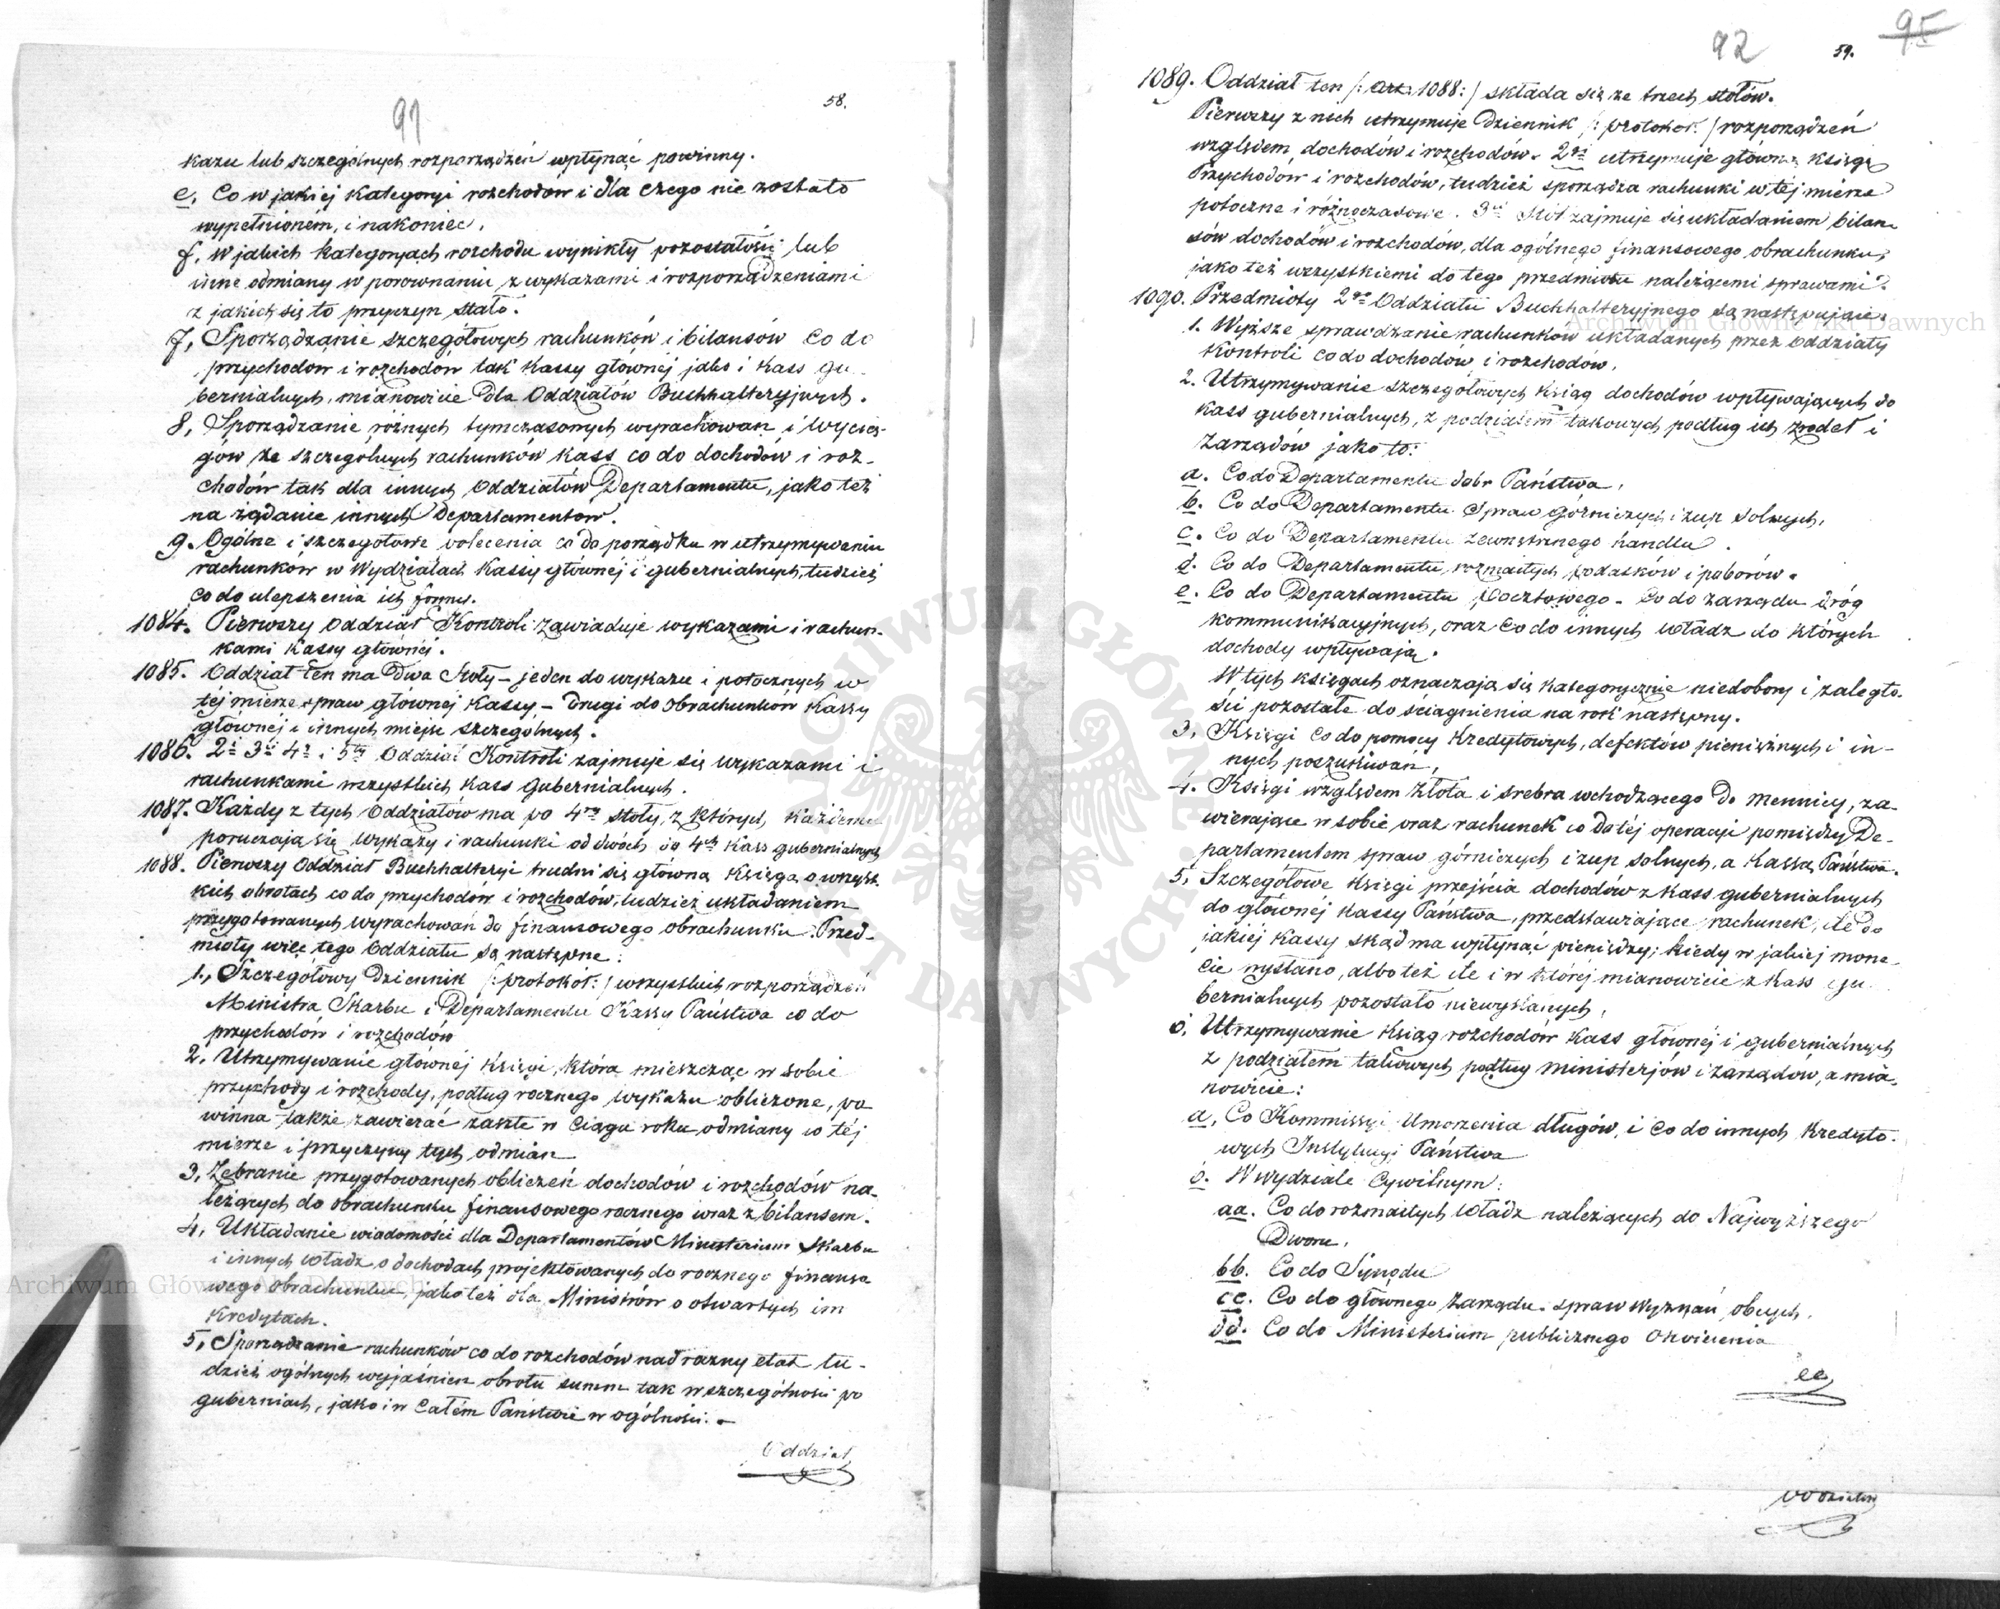 58.
91
kazu lub szczególnych rozporządzeń wpłynąć powinny.
e, Co w jakiej kategoryi rozchodów i dla czego nie zostało
wypełnioném, i nakoniec,
f, W jakich kategoryach rozchodu wynikły pozostałości lub
inne odmiany w porównaniu z wykazami i rozporządzeniami
z jakich się to przyczyn stało.
7, Sporządzanie szczegółowych rachunków i bilansów co do
przychodów i rozchodów tak Kassy głównéj jako i Kass gu-
bernialnych, mianowicie dla Oddziałów Buchhalteryjnych.
8, Sporządzanie różnych tymczasowych wyrachowań i wycią-
gów ze szczególnych rachunków Kass co do dochodów i roz-
chodów tak dla innych Oddziałów Departamentu, jako też
na żądanie innych Departamentów.
9. Ogólne i szczegółowe polecenia co do porządku w utrzymywaniu
rachunków w Wydziałach Kassy głównéj i gubernialnych, tudzież
co do ulepszenia ich formy.
1084. Pierwszy Oddział Kontroli zawiaduje wykazami i rachun-
kami Kassy głównéj.
1085. Oddział ten ma Dwa Stoły – jeden do wykazu i potocznych w
téj mierze spraw głównéj Kassy – Drugi do obrachunków Kassy
głównéj i innych miejsc szczególnych.
1086. 2i 3ci 4ty i 5ty Oddział Kontroli zajmuje się wykazami i
rachunkami wszystkich Kass Gubernialnych.
1087. Każdy z tych Oddziałów ma po 4ry stoły, z których każdemu
poruczają się wykazy i rachunki od dwóch do 4ch Kass gubernialnych
1088. Pierwszy Oddział Buchhalteryi trudni się główną Księgą o wszyst-
kich obrotach co do przychodów i rozchodów, tudzież układaniem
przygotowanych wyrachowań do finansowego obrachunku. Przed-
mioty więc tego Oddziału są następne:
1., Szczegółowy Dziennik /: protokół :/ wszystkich rozporządzeń
Ministra Skarbu i Departamentu Kassy Państwa co do
przychodów i rozchodów
2. Utrzymywanie głównéj Księgi, która mieszcząc w sobie
przychody i rozchody, podług rocznego wykazu obliczone, po
winna także zawierać zaszłe w ciągu roku odmiany w téj
mierze i przyczyny tych odmian
3, Zebranie przygotowanych obliczeń dochodów i rozchodów na-
leżących do obrachunku finansowego rocznego wraz z bilansem.
4, Układanie wiadomości dla Departamentów Ministerium Skarbu
i innych Władz o dochodach projektowanych do rocznego finanso
wego obrachunku, jako też dla Ministrów o otwartych im
Kredytach.
5, Sporządzanie rachunków co do rozchodów nad razny etat tu-
dzież ogólnych wyjaśnień obrotu summ tak w szczególności po
guberniach, jako i w całém Państwie w ogólności. –
Oddział
95
92
59.
1089. Oddział ten /: Art: 1088 :/ składa się ze trzech stołów.
Pierwszy z nich utrzymuje Dziennik /: protokół :/ rozporządzeń
względem dochodów i rozchodów. 2gi utrzymuje główną księgę
Przychodów i rozchodów, tudzież sporządza rachunki w téj mierze
potoczne i różnoczasowe. 3ci Stół zajmuje się układaniem bilan-
sów dochodów i rozchodów, dla ogólnego finansowego obrachunku,
jako też wszystkiemi do tego przedmiotu należącemi sprawami.
1090. Przedmioty 2go Oddziału Buchhalteryjnego są następujące.
1. Wyższe sprawdzanie rachunków układanych przez Oddziały
Kontroli co do dochodów i rozchodów.
2. Utrzymywanie szczegółowych Ksiąg dochodów wpływających do
Kass gubernialnych, z podziałem takowych podług ich źrodeł i
Zarządów jako to:
a. Co do Departamentu dóbr Państwa,
b. Co do Departamentu spraw górniczych i żup solnych,
c. Co do Departamentu zewnętrznego handlu.
d. Co do Departamentu rozmaitych podatków i poborów.
e. Co do Departamentu Pocztowego – Co do zarządu dróg
kommunikacyjnych, oraz co do innych Władz do których
dochody wpływają.
W tych księgach oznaczają się kategorycznie niedobory i zaległo-
ści pozostałe do sciągnienia na rok następny.
3, Księgi co do pomocy Kredytowych, defektów pieniężnych i in-
nych poszukiwań,
4. Księgi względem złota i srebra wchodzącego do Mennicy, za-
wierające w sobie oraz rachunek co do téj operacyi pomiędzy De-
partamentem spraw górniczych i żup solnych, a Kassą Państwa.
5, Szczegółowe Księgi przejścia dochodów z Kass gubernialnych
do głównéj Kassy Państwa, przedstawiające rachunek, ile do
jakiéj Kassy skąd ma wpłynąć pieniędzy; kiedy w jakiéj mone-
cie wysłano, albo też ile i w któréj mianowicie z Kass gu-
bernialnych pozostało niewysłanych,
6, Utrzymywanie Ksiąg rozchodów Kass głównéj i gubernialnych
z podziałem takowych podług ministerjów i zarządów, a mia-
nowicie:
a, Co Kommissyi Umorzenia długów, i co do innych Kredyto-
wych Instytucyi Państwa
b. W wydziale Cywilnym:
aa. Co do rozmaitych Władz należących do Najwyższego
Dworu.
bb. Co do Synodu
cc. Co do głównego Zarządu spraw wyznań obcych.
dd. Co do Ministerium publicznego Oświecenia
ee,
Archiwum Główne Akt Dawnych
Archiwum Główne Akt Dawnych
ARCHIWUM GŁÓWNE AKT DAWNYCH